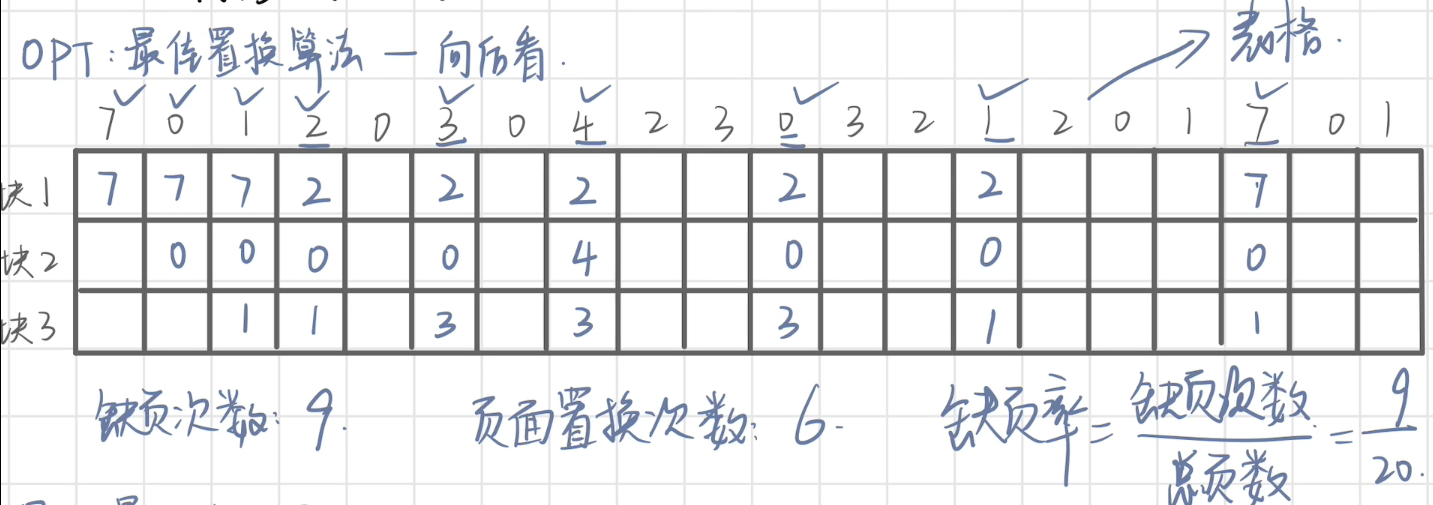 OPT：最佳置换算法 — 向后看．
表格．
7 0 1 2 0 3 0 4 2 3 0 3 2 1 2 0 1 7 0 1
块1 7 7 7 2 2 2 2 2 7
块2 0 0 0 0 4 0 0 0
块3 1 1 3 3 3 1 1
缺页次数：9． 页面置换次数：6． 缺页率 = 缺页次数/总页数 = 9/20．